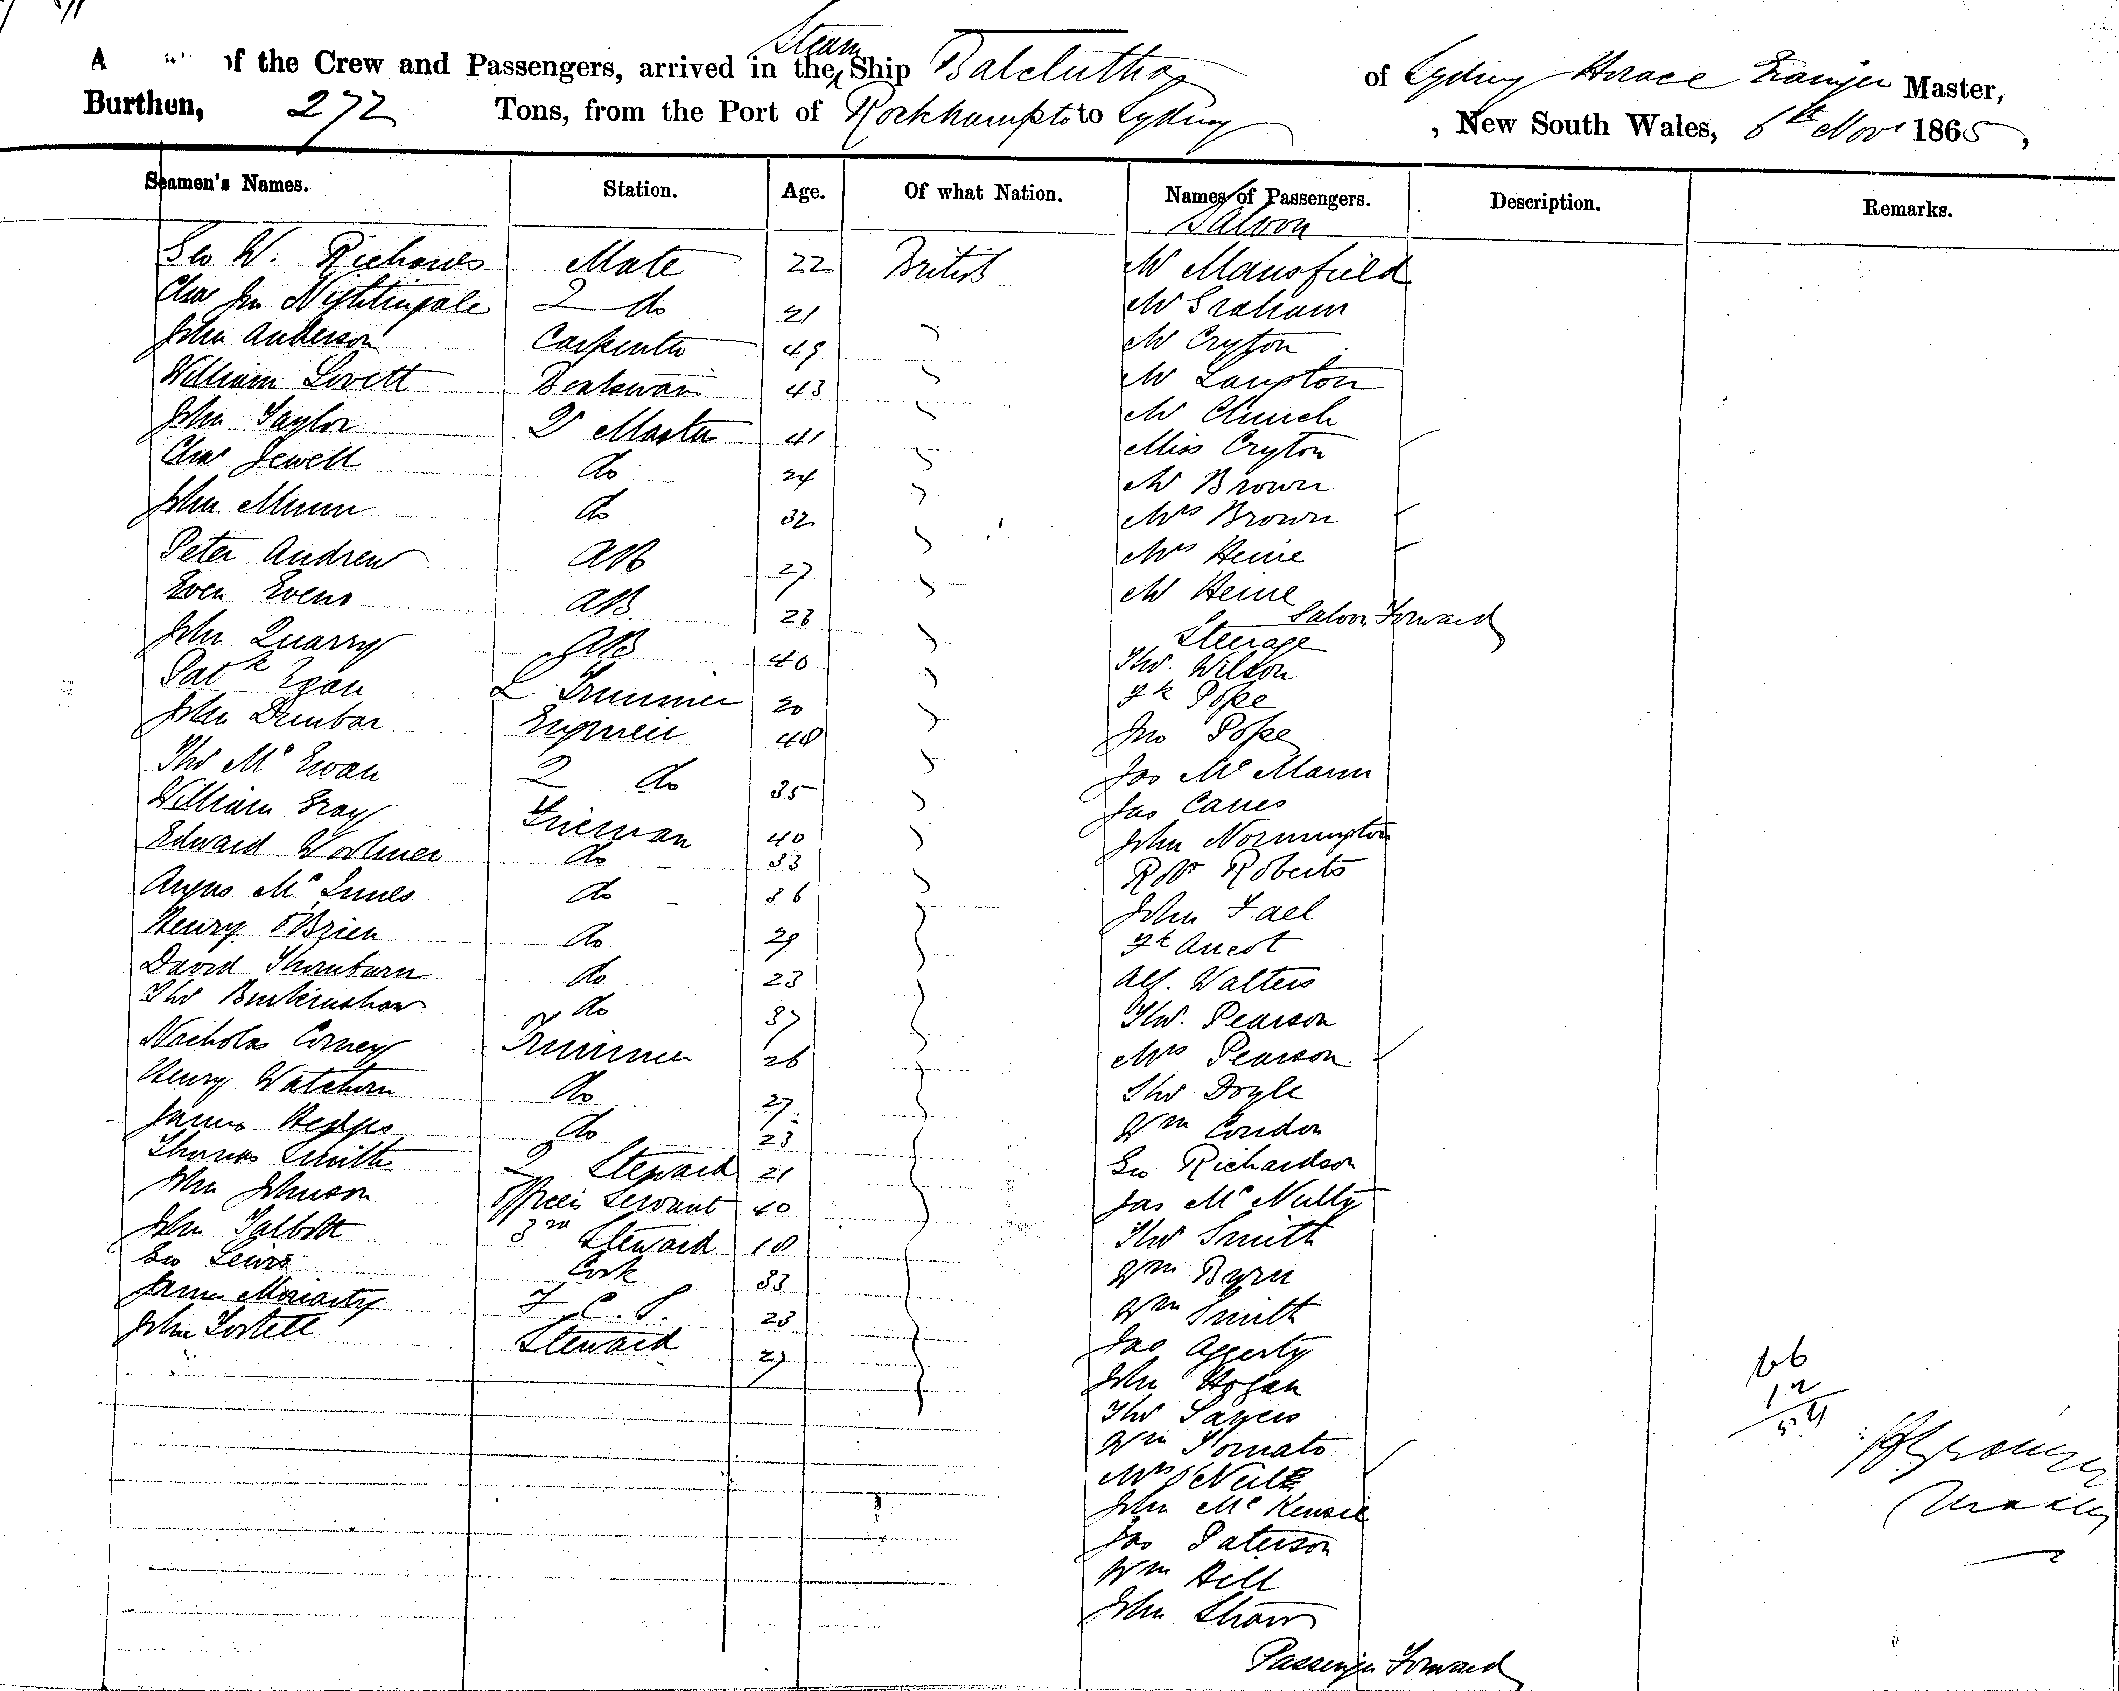 A of the Crew and Passengers, arrived in the Steam Ship Balclutha of Sydney Horace Grainger Master,
Burthen, 272 Tons, from the Port of Rockhampto to Sydney , New South Wales, 6th Novr 1865,
Seamen's Names. Station. Age. Of what Nation. Names of Passengers. Description. Remarks.
Saloon
Geo W. Richards Mate 22 British Mr Mansfield
Chas Jn Nightingale 2 do 21 Mr Graham
John Anderson Carpenter 49 Mr Cryton
William Lovett Boatswain 43 Mr Langton
John Taylor Qr Master 41 Mr Church
Chas Jewell do 24 Miss Cryton
John Munn do 32 Mr Brown
Mrs Brown
Peter Andrew AB 27 Mrs Heine
Even Evens AB 28 Mr Heine
Saloon Forward
John Quarry AB 40 Steerage
Patk Egan L Trimmer 20 Thos. Wilson
John Dunbar Engineer 48 Fk Pope
Jno Pope
Thos McEwan 2 do 35 Jas McMann
William Gray Fireman 40 Jas
Edward do 33 John Normington
Angus McInnes do 36 Robt Roberts
Henry O'Brien do 29 John
David Thornburn do 23 Fk
Thos do 37 Alf. Walters
Nicholas Corney Trimmer 26 Thos. Pearson
Henry do 27 Mrs Pearson
James do 23 Thos Doyle
Thomas Smith 2 Steward 21 Wm Condon
John Johnson Officers Servant 40 Geo Richardson
John Talbott 3rd Steward 18 Jas McNulty
Geo Lewis Cook 33 Thos Smith
James Moriarty F. C. S. 23 Wm Byrn
John Steward 27 Wm Smith
Jas Aggerty
John Hogan
Thos Sayers
Wm
Mrs O'Neill
John McKensie
Jas Paterson
Wm Hill
John Shaw
Passenger Forward
66
12
54
Grainger
Master